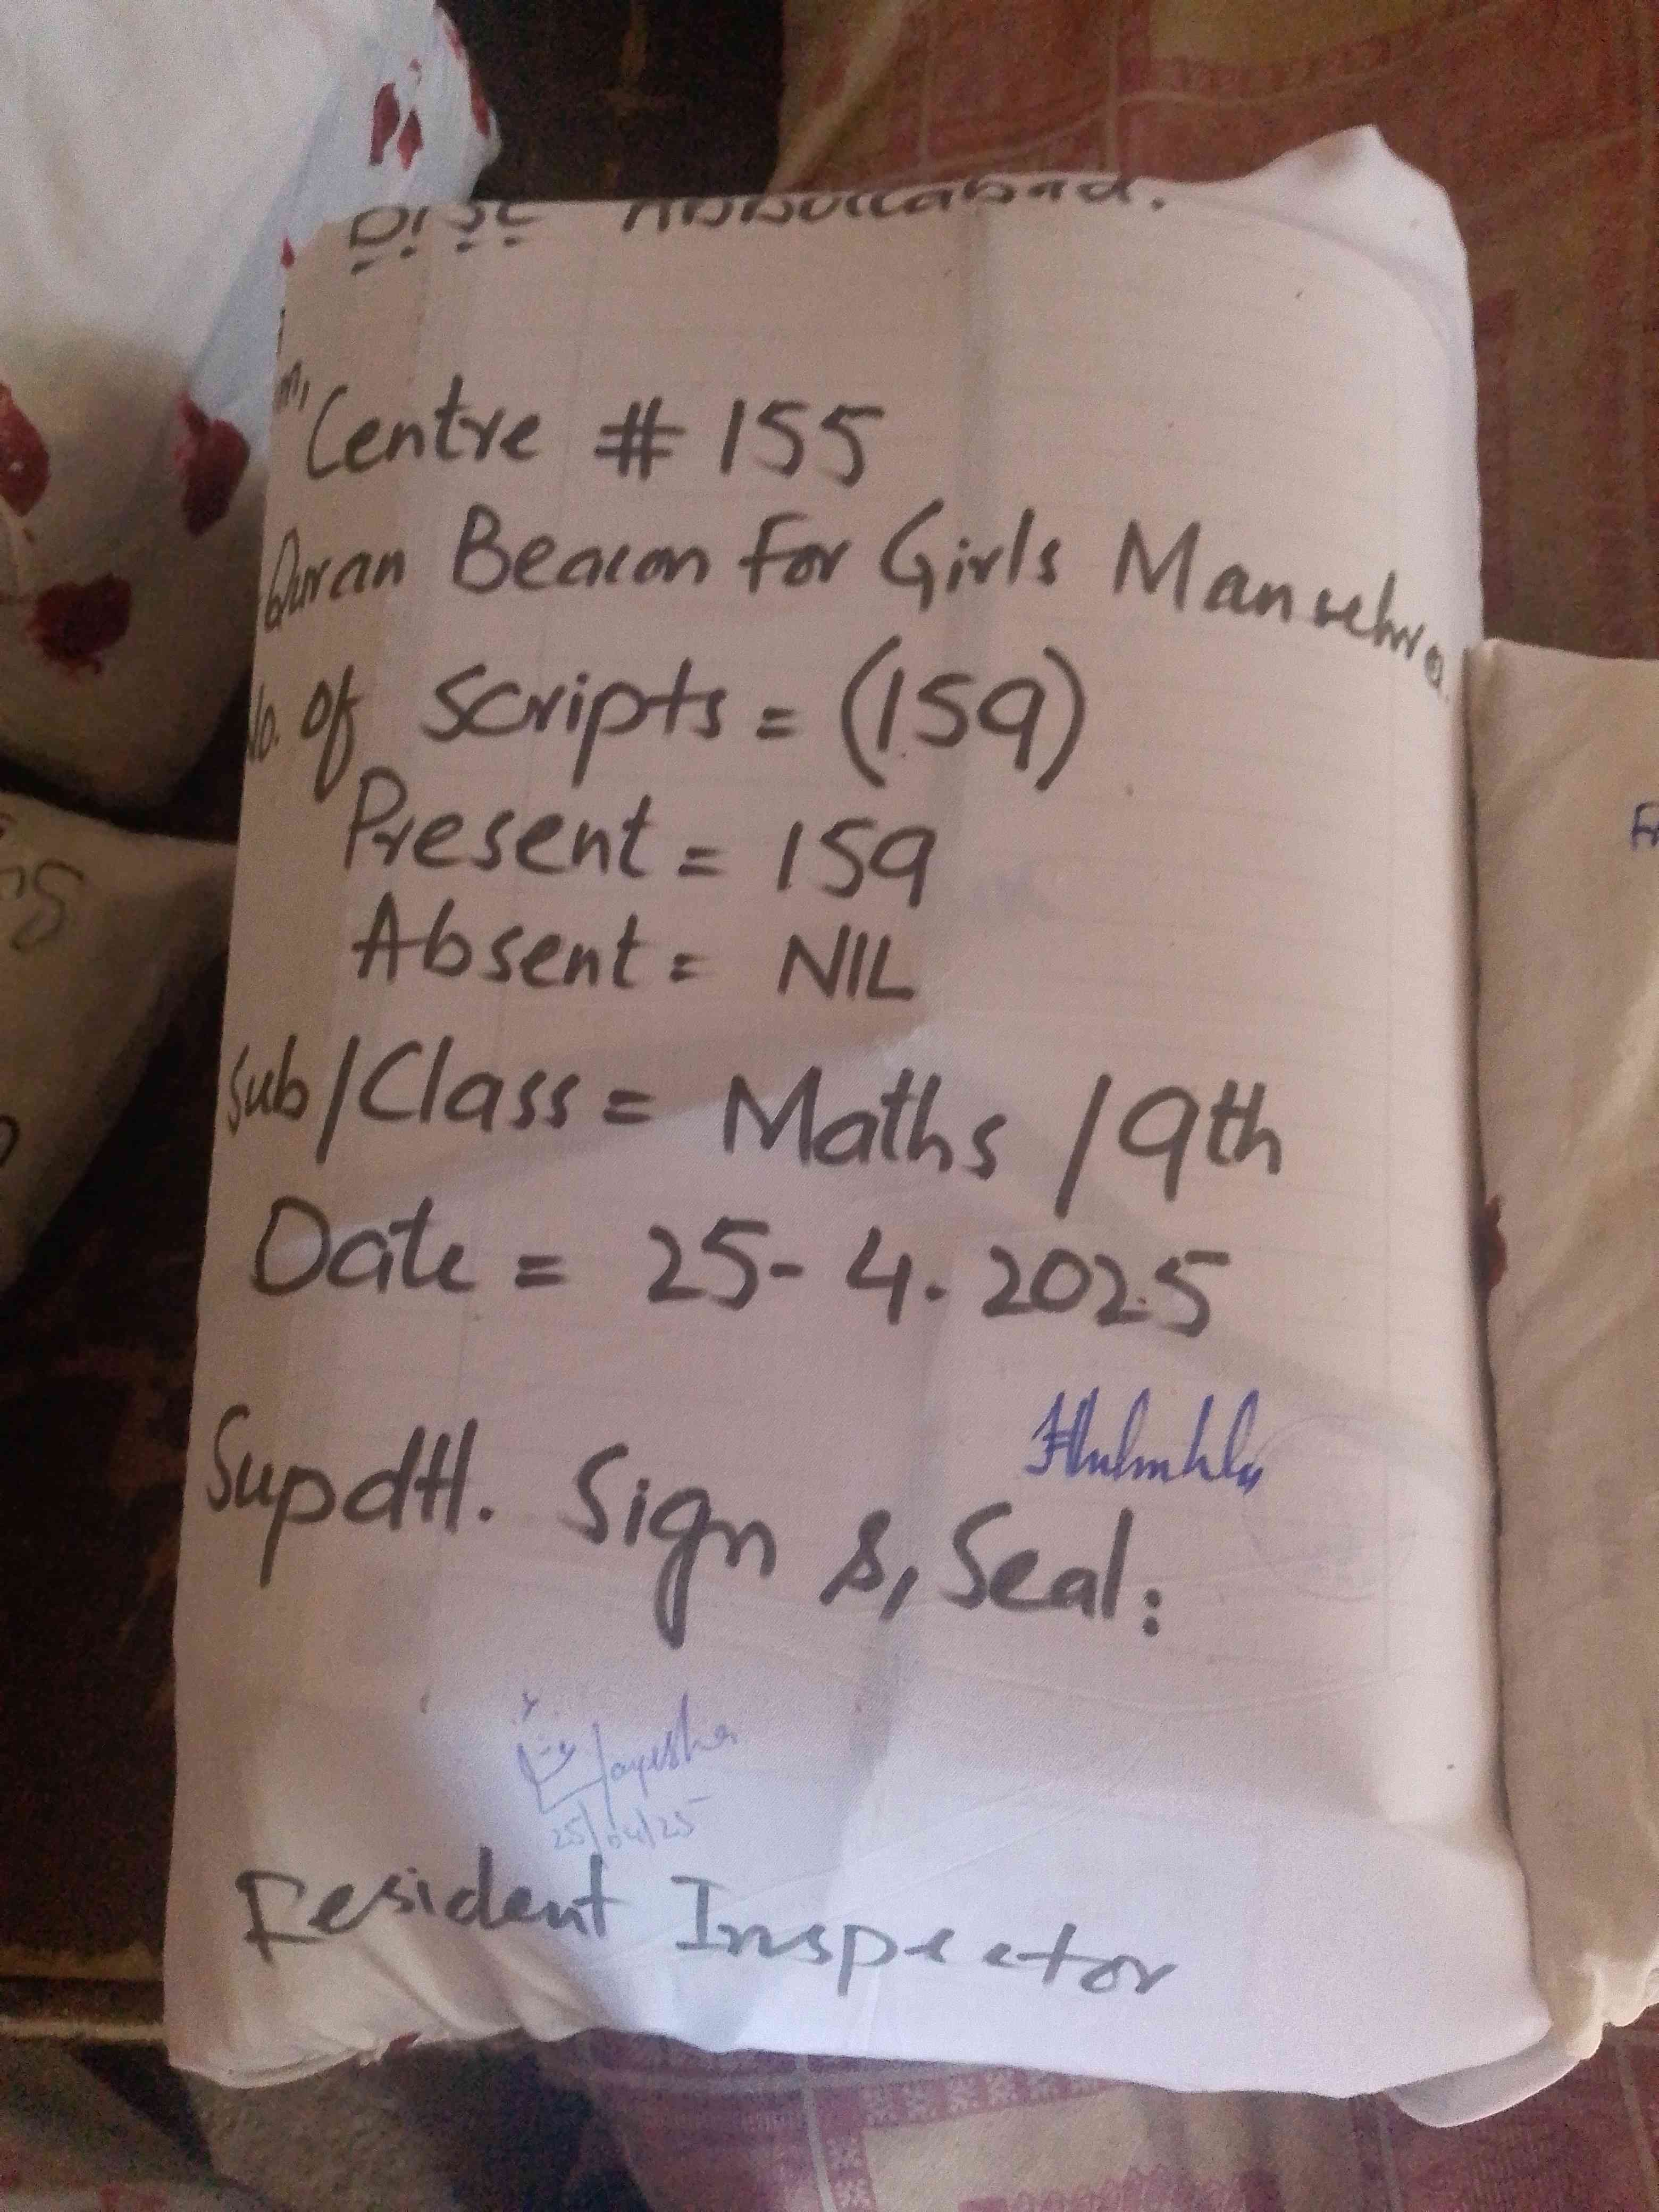 Disc Abbottabad.
m,
Centre # 155
Quran Beacon For Girls Mansehra.
No. of Scripts = (159)
Present = 159
Absent = NIL
Sub/Class = Maths / 9th
Date = 25-4.2025
Supdtt. Sign &, Seal:
25/04/25
Resident Inspector